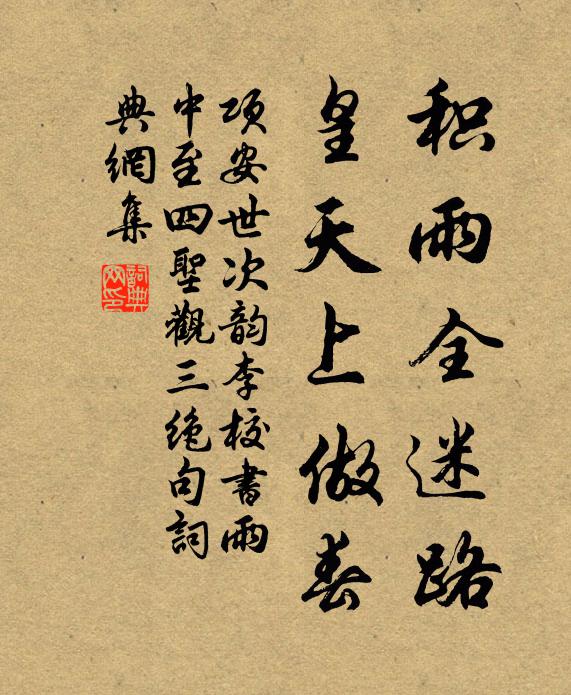 积雨全迷路
皇天上做春
项安世次韵李校書雨
中至四聖觀三绝句詞
典網集
詞典网印